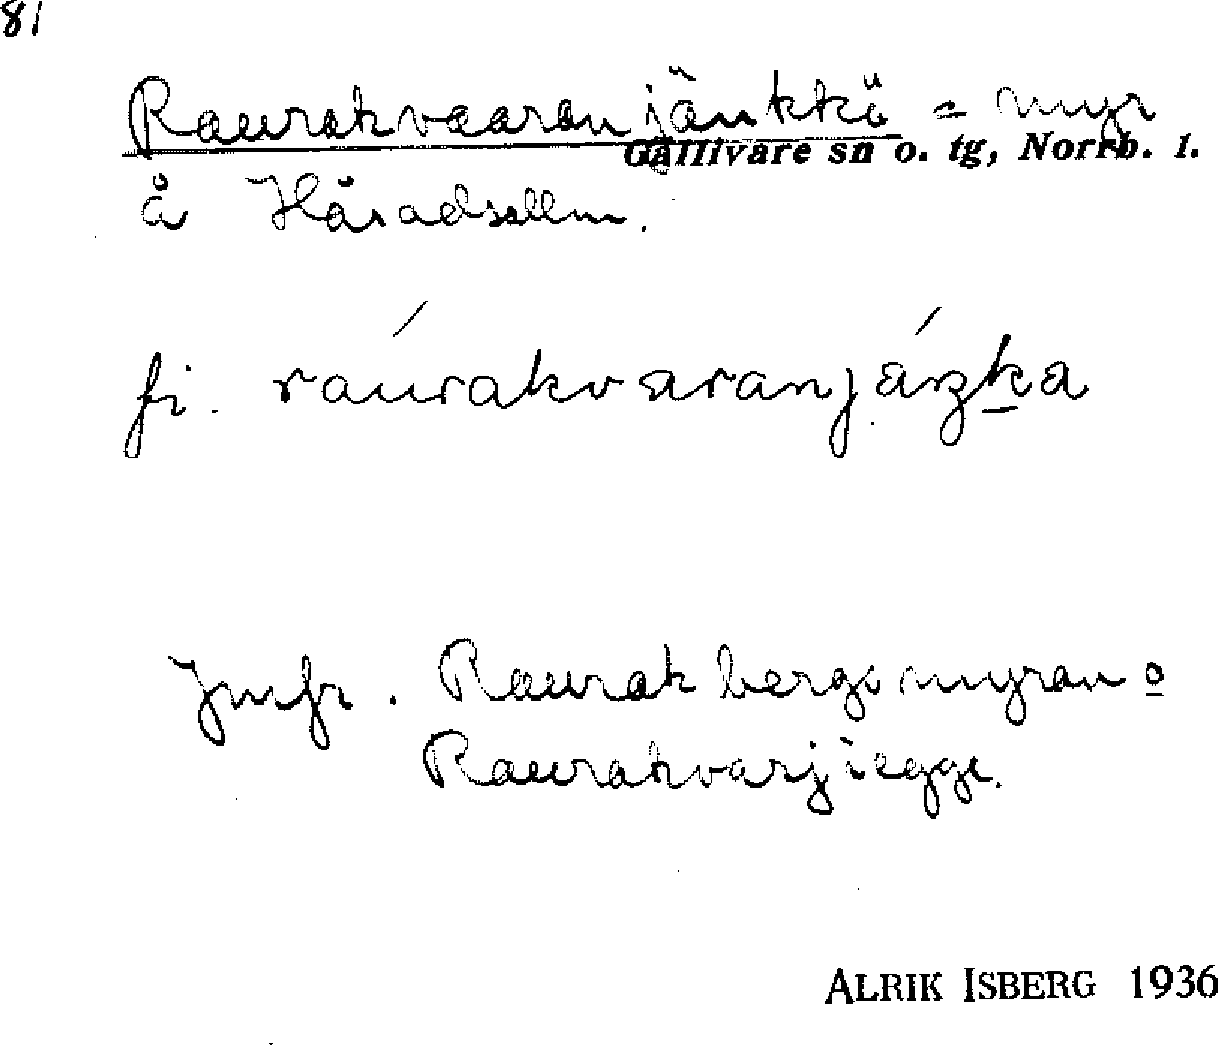 81
Raurakvaaranjänkkä = myr
Gällivare sn o. tg, Norrb. l.
å Häradsallm.
fi. raúrakvaranjáŋka
Jmfr. Raurakbergsmyran o
Raurakvarjiegge.
ALRIK ISBERG 1936